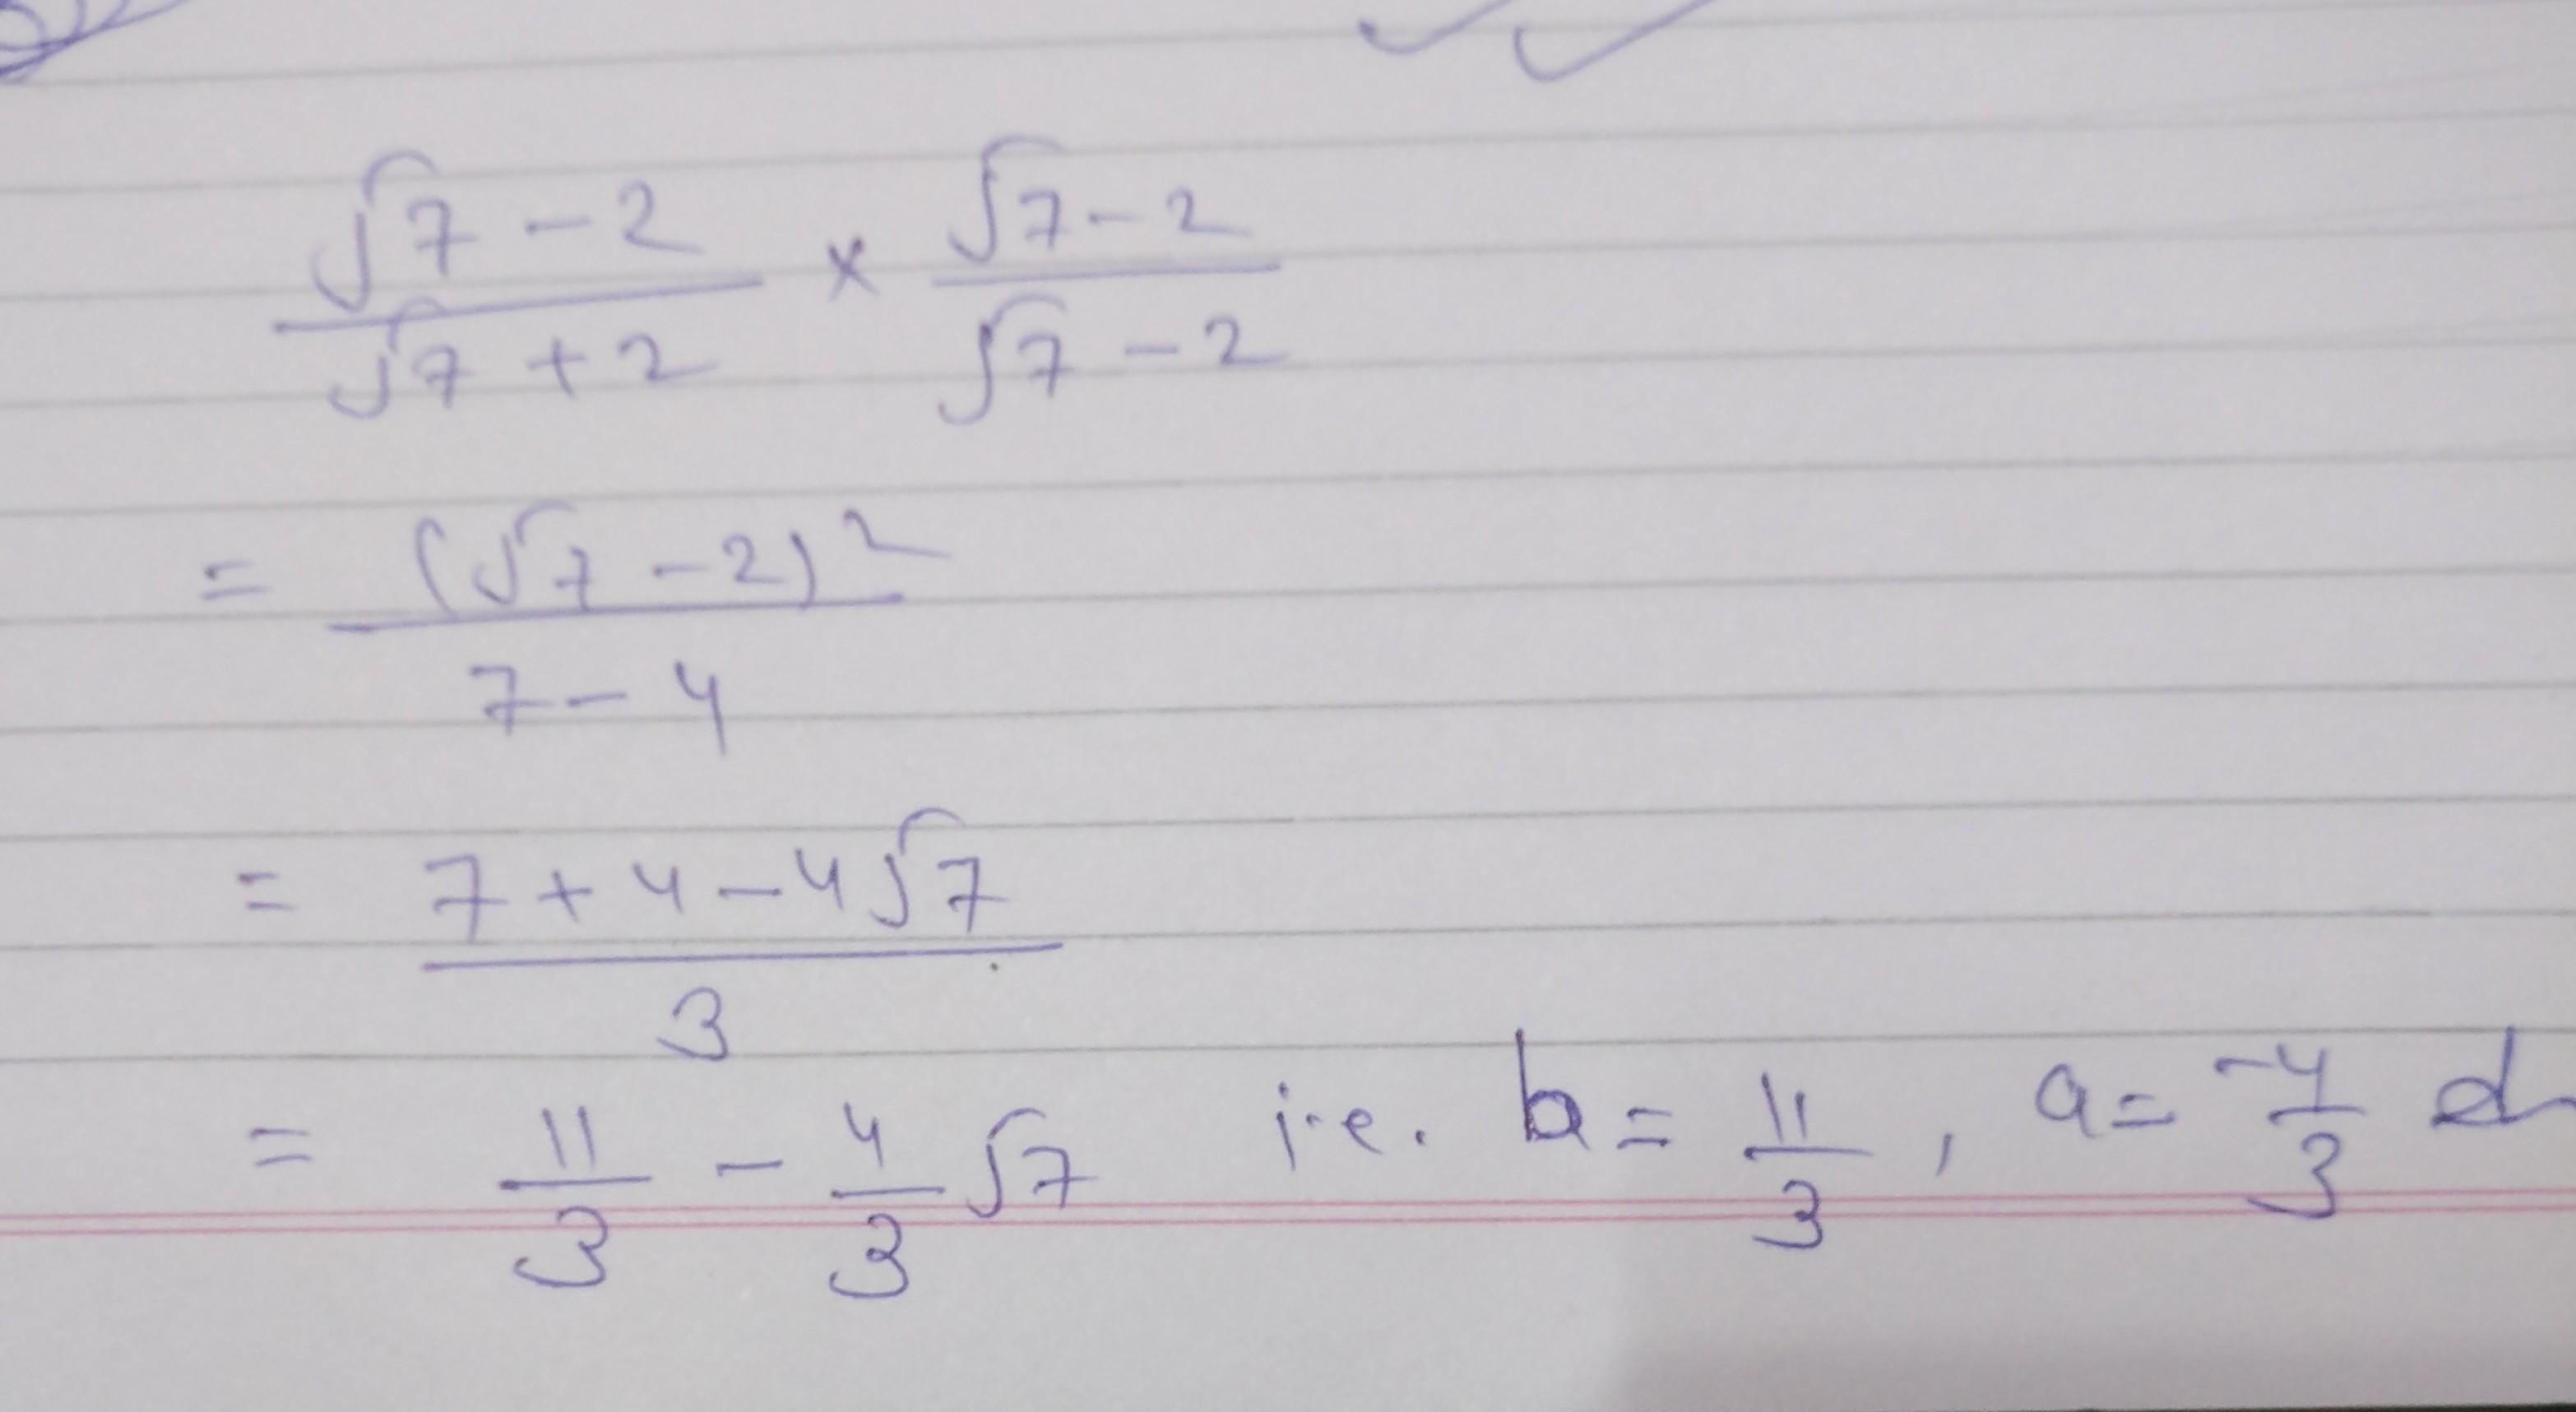 √7 - 2 / √7 + 2 × √7 - 2 / √7 - 2
= (√7 - 2)² / 7 - 4
= 7 + 4 - 4√7 / 3
= 11/3 - 4/3 √7 i.e. b = 11/3 , a = -4/3